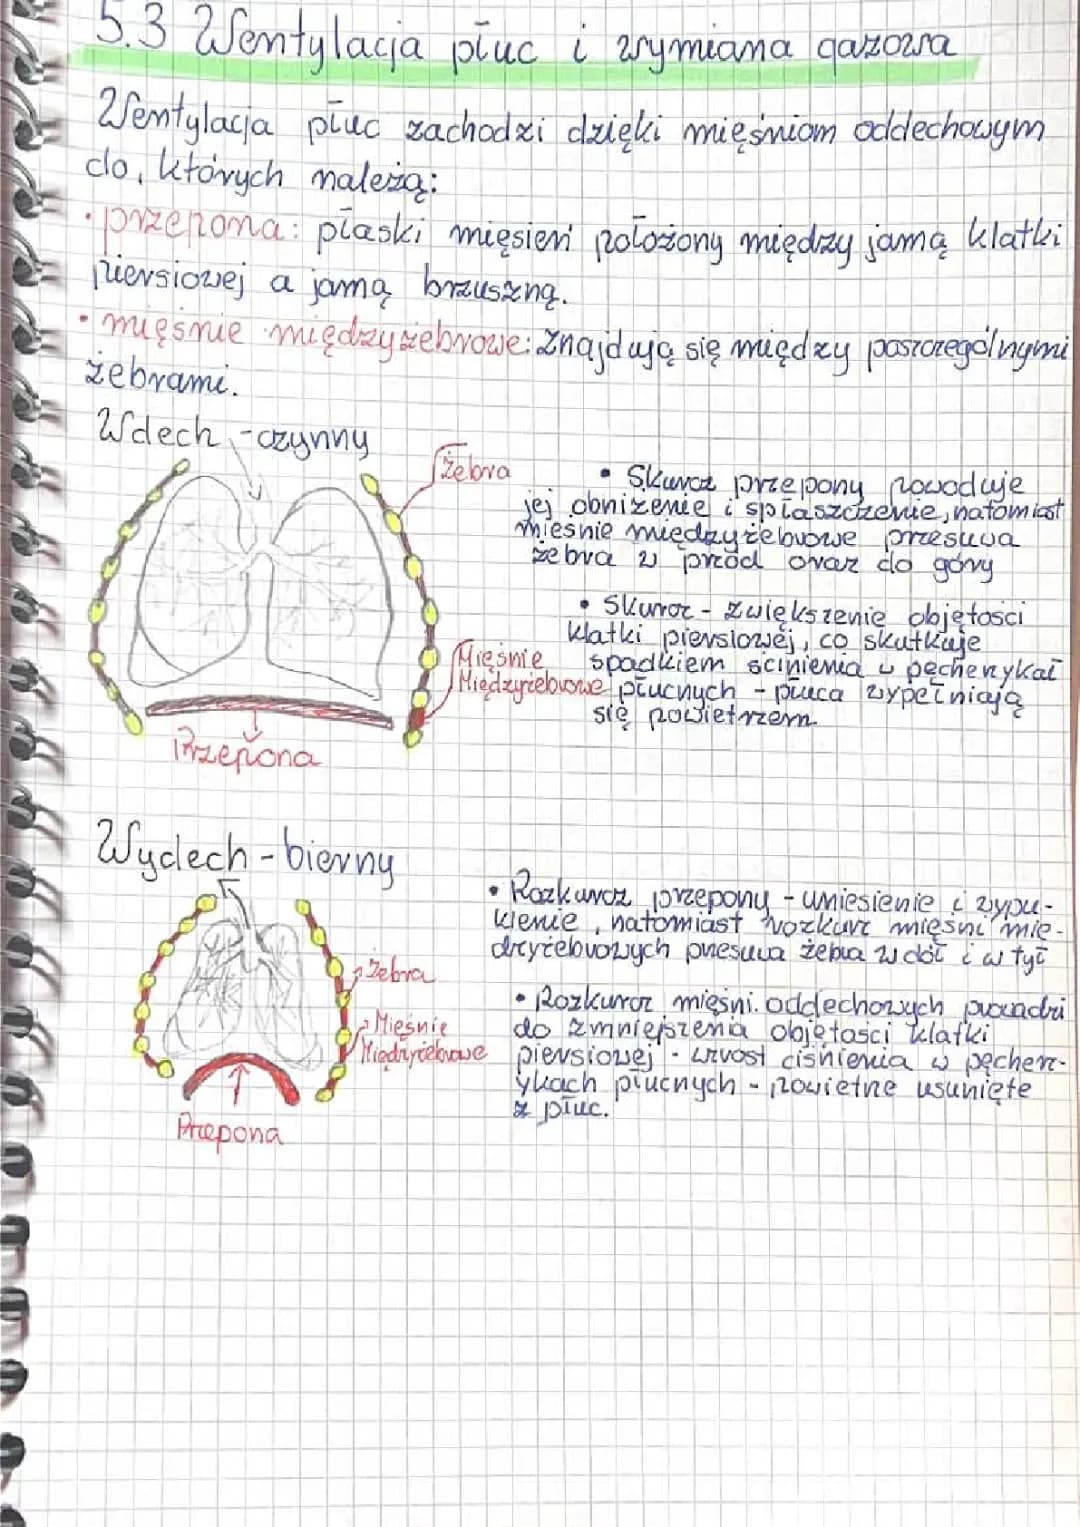 5.3 Wentylacja płuc i wymiana gazowa
Wentylacja płuc zachodzi dzięki mięśniom oddechowym
do, których należą:
• przepona: płaski mięsień położony między jamą klatki
piersiowej a jamą brzuszną.
• mięśnie międzyżebrowe: znajdują się między poszczególnymi
żebrami.
Wdech - czynny
Żebra
• Skurcz przepony powoduje
jej obniżenie i spłaszczenie, natomiast
mięśnie międzyżebrowe przesuwa
żebra w przód oraz do góry
• Skurcz - zwiększenie objętości
klatki piersiowej, co skutkuje
spadkiem ściniemia w pęchenykał
płucnych - płuca wypełniają
się powietrzem
Mięśnie
Międzyżebrowe
Przepona
Wydech - bierny
• Rozkurcz przepony - uniesienie i wypu-
klenie, natomiast rozkurcz mięśni mię-
dzyżebrowych przesuwa żebra w dół i w tył
Żebra
Mięśnie
Międzyżebrowe
• Rozkurcz mięśni oddechowych prowadzi
do zmniejszenia objętości klatki
piersiowej - wzrost ciśnienia w pęcherz-
ykach płucnych - powietrze usunięte
z płuc.
Przepona